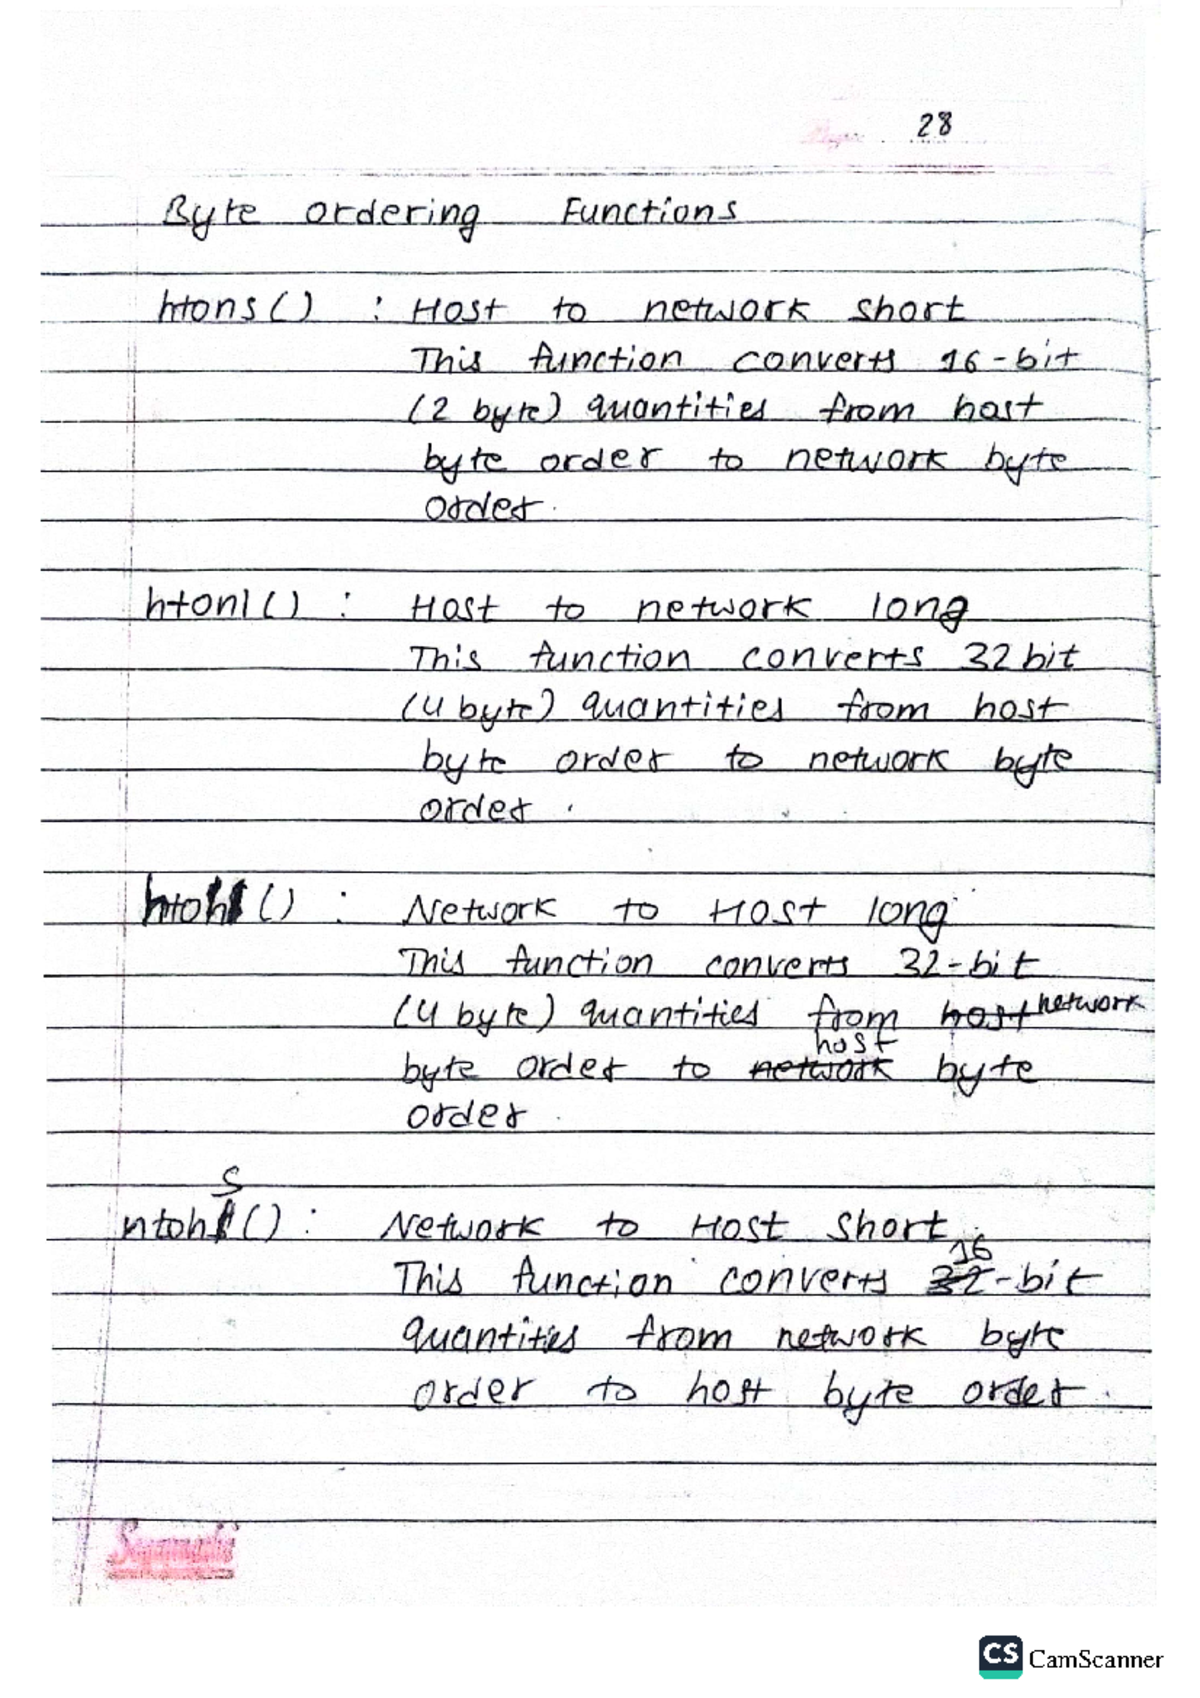 28
Byte ordering Functions
htons() : Host to network short
This function converts 16-bit
(2 byte) quantities from host
byte order to network byte
order.
htonl() : Host to network long
This function converts 32 bit
(4 byte) quantities from host
byte order to network byte
order.
() : Network to Host long
This function converts 32-bit
(4 byte) quantities from host network
byte order to network host byte
order.
ntohs() : Network to Host short.
This function converts 32 16-bit
quantities from network byte
order to host byte order.
CS CamScanner